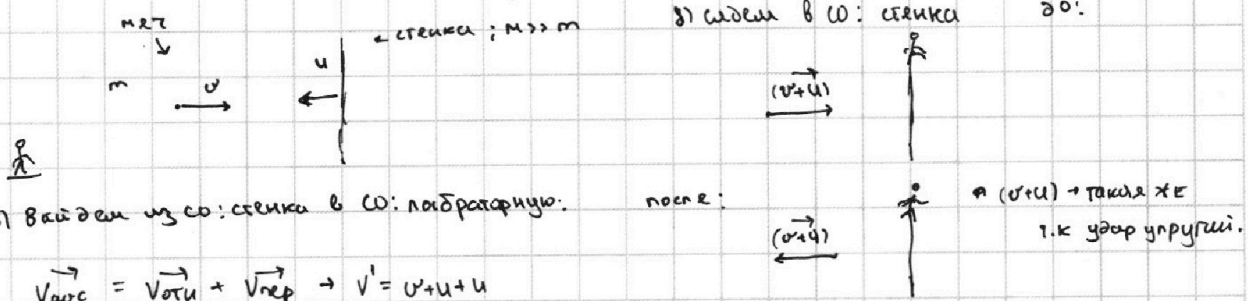 мяч
← стенка ; M>>m
m
v
u
д) сядем в СО: стенка до:
(v+u)
) Выйдем из со: стенка в СО: лабраторную.
после:
(v+u)
(v+u) → такая же
т.к удар упругий.
Vабс = Vотн + Vпер → V' = v+u+u